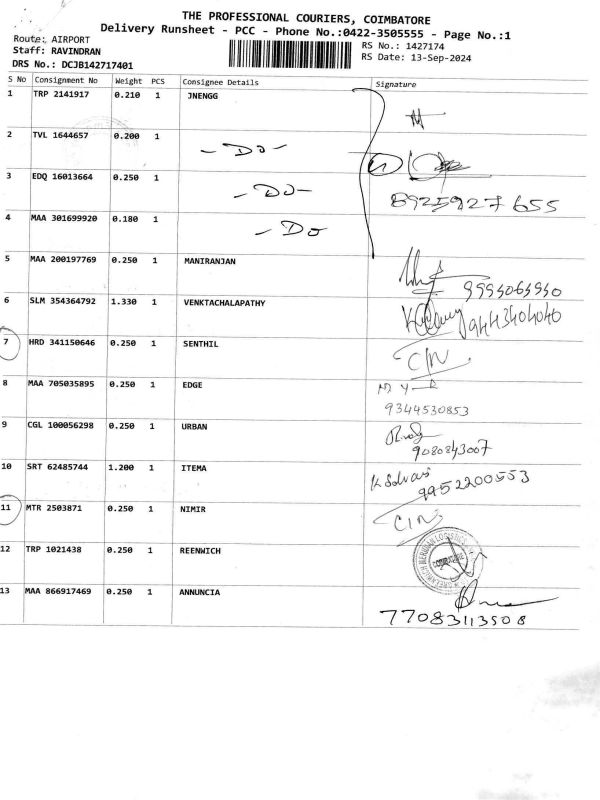 THE PROFESSIONAL COURIERS, COIMBATORE
Delivery Runsheet - PCC - Phone No.:0422-3505555 - Page No.:1
Route: AIRPORT
Staff: RAVINDRAN
DRS No.: DCJB142717401
RS No.: 1427174
RS Date: 13-Sep-2024
S No Consignment No Weight PCS Consignee Details Signature
1 TRP 2141917 0.210 1 JNENGG
2 TVL 1644657 0.200 1 - Do -
3 EDQ 16013664 0.250 1 - Do - 8925927655
4 MAA 301699920 0.180 1 - Do
5 MAA 200197769 0.250 1 MANIRANJAN
6 SLM 354364792 1.330 1 VENKTACHALAPATHY 9443404040
7 HRD 341150646 0.250 1 SENTHIL
8 MAA 705035895 0.250 1 EDGE 9344530853
9 CGL 100056298 0.250 1 URBAN 9080843007
10 SRT 62485744 1.200 1 ITEMA 9952200553
11 MTR 2503871 0.250 1 NIMIR
12 TRP 1021438 0.250 1 REENWICH COIMBATORE
13 MAA 866917469 0.250 1 ANNUNCIA
77083113508